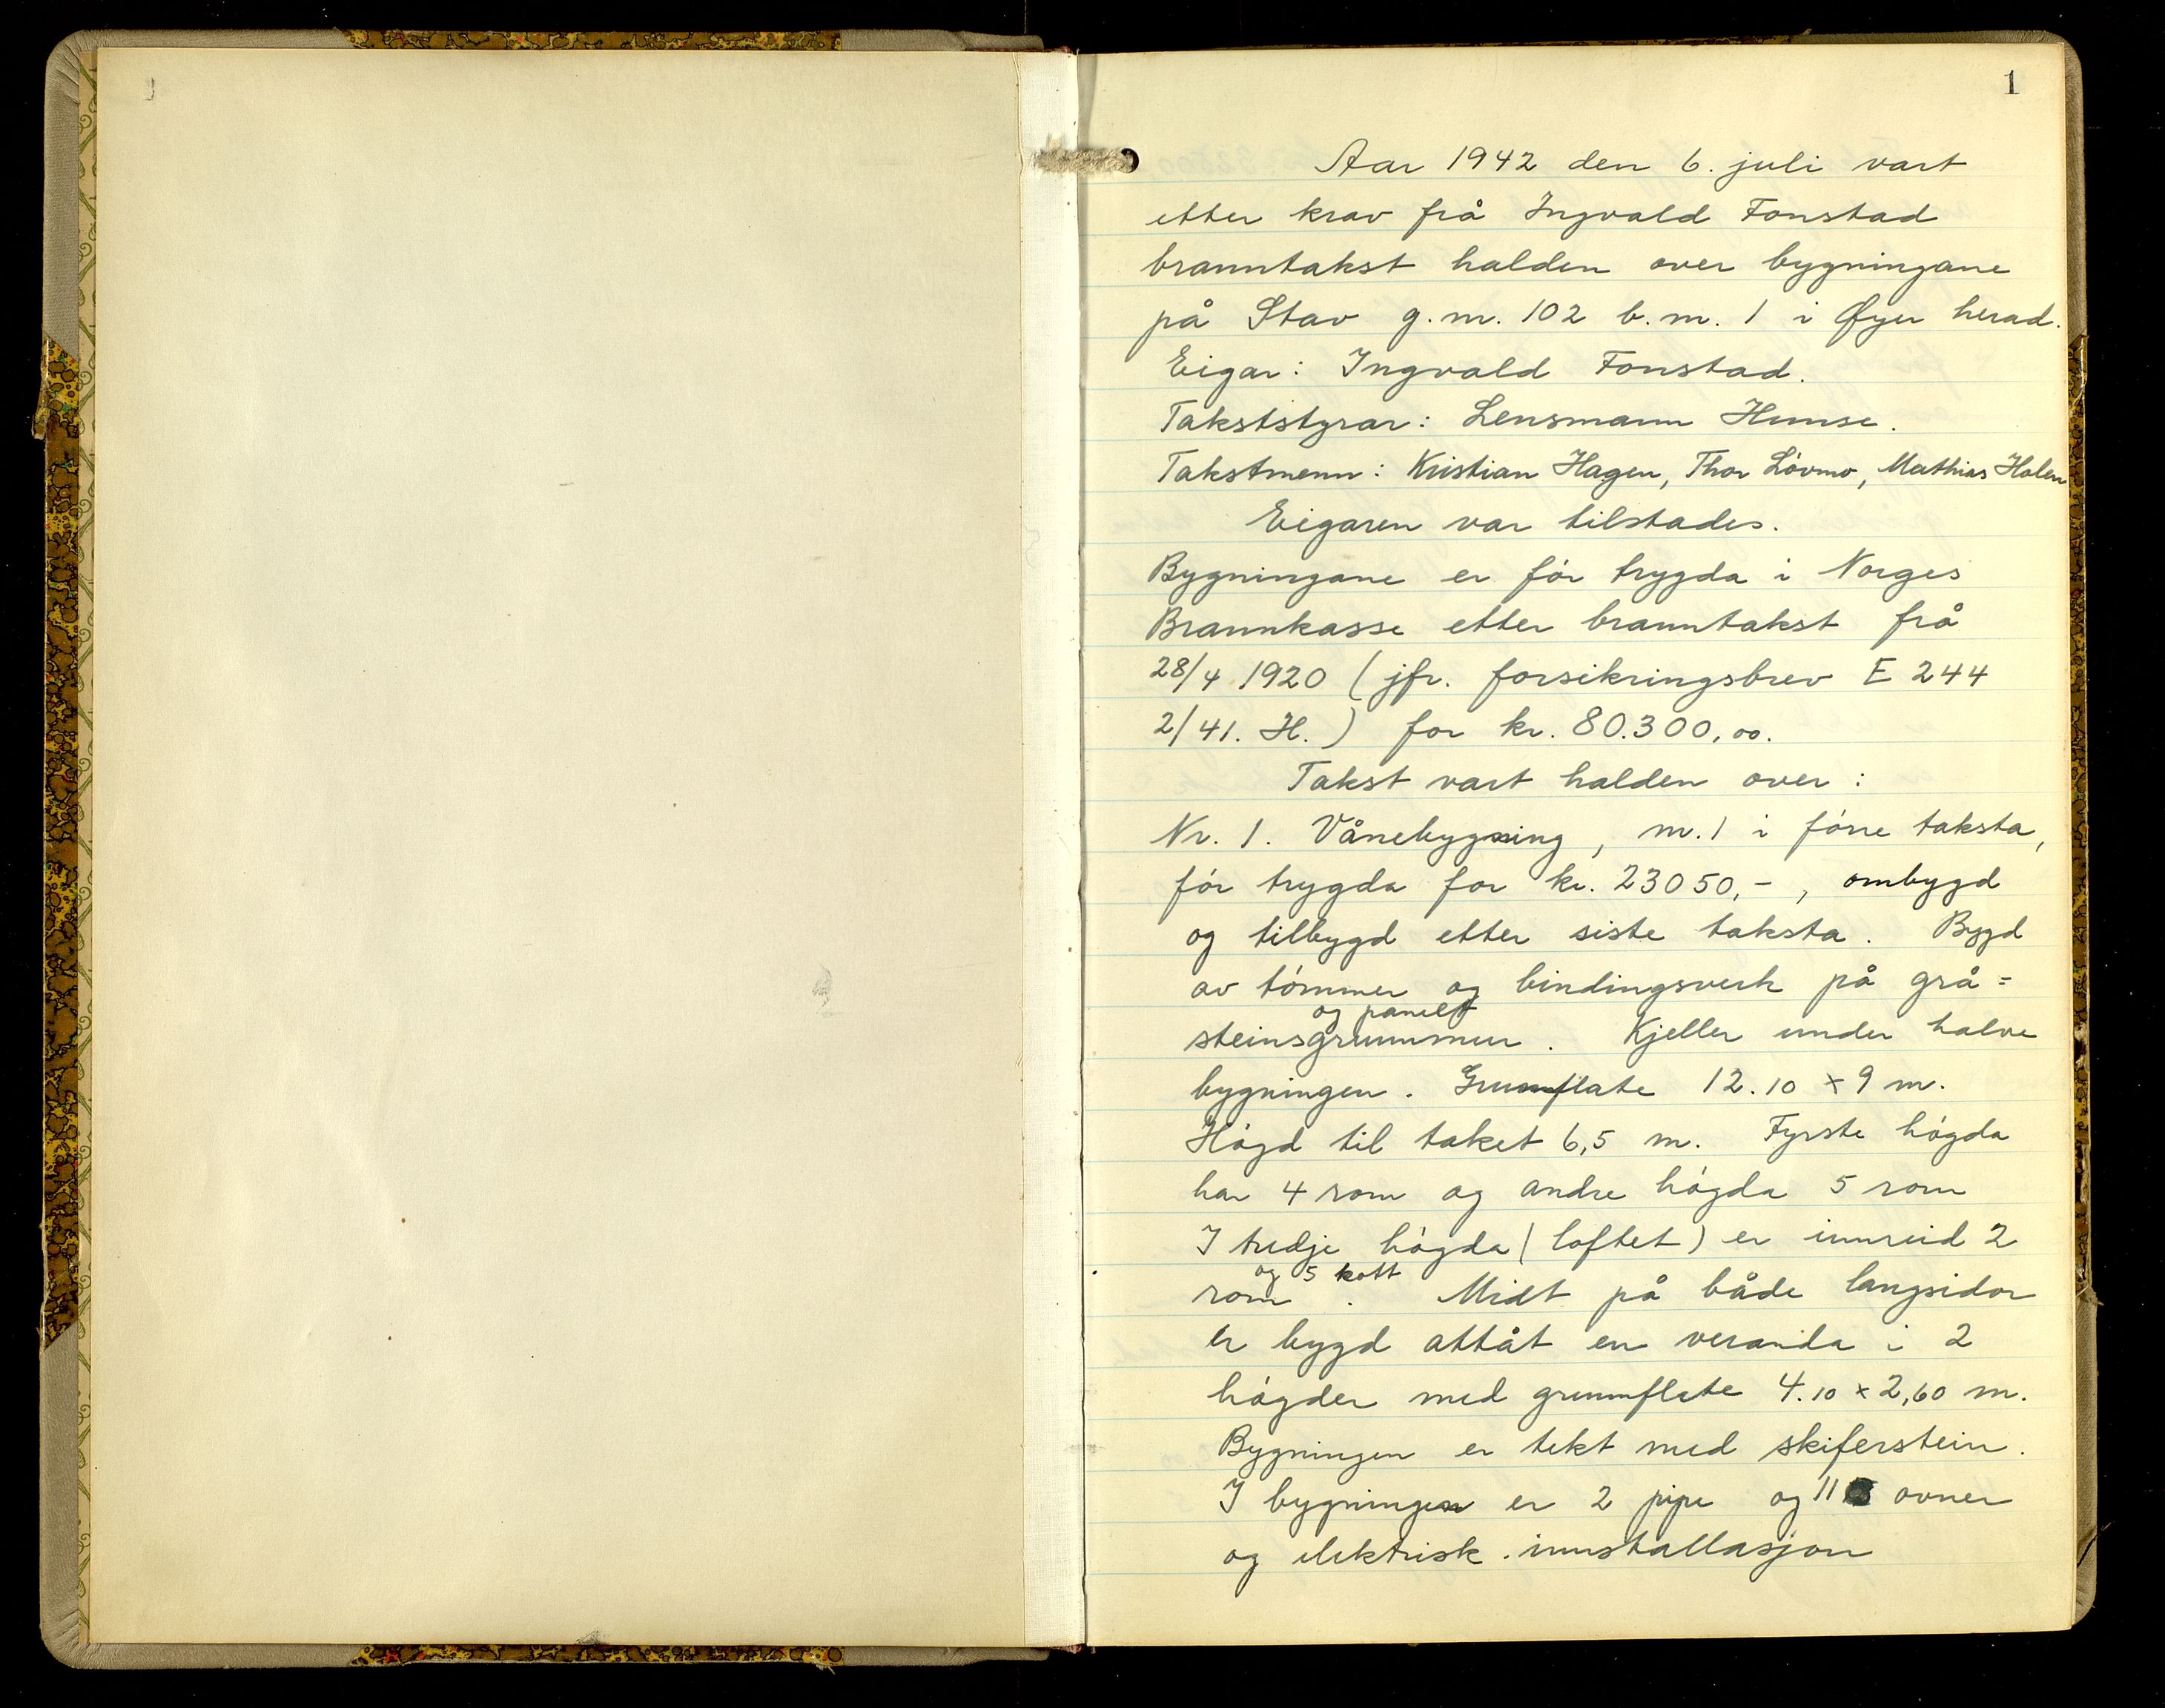 1
Aar 1942 den 6. juli vart
etter krav frå Ingvald Fonstad
branntakst halden over bygningane
på Stav g.nr. 102 b.nr. 1 i Øyer herad.
Eigar: Ingvald Fonstad.
Takststyrar: Lensmann Hunse.
Takstmenn: Kristian Hagen, Thor Lövmo, Mathias Holen
Eigaren var tilstades.
Bygningane er för trygda i Norges
Brannkasse etter branntakst frå
28/4 1920 (jfr. forsikringsbrev E 244
2/41. H.) for kr. 80.300,00.
Takst vart halden over:
Nr. 1. Vånebygning, nr. 1 i förre taksta,
för trygda for kr. 23050,-, ombygd
og tilbygd etter siste taksta. Bygd
av tömmer og bindingsverk på grå=
og panelt
steinsgrunnmur. Kjeller under halve
bygningen. Grunnflate 12.10 x 9 m.
Högd til taket 6,5 m. Fyrste högda
har 4 rom og andre högda 5 rom
I tredje högda (loftet) er innreid 2
og 5 kott
rom. Midt på både langsidor
er bygd attåt en veranda i 2
högder med grunnflate 4.10 x 2,60 m.
Bygningen er tekt med skiferstein.
I bygningen er 2 pipe og 11 ovner
og elektrisk innstallasjon